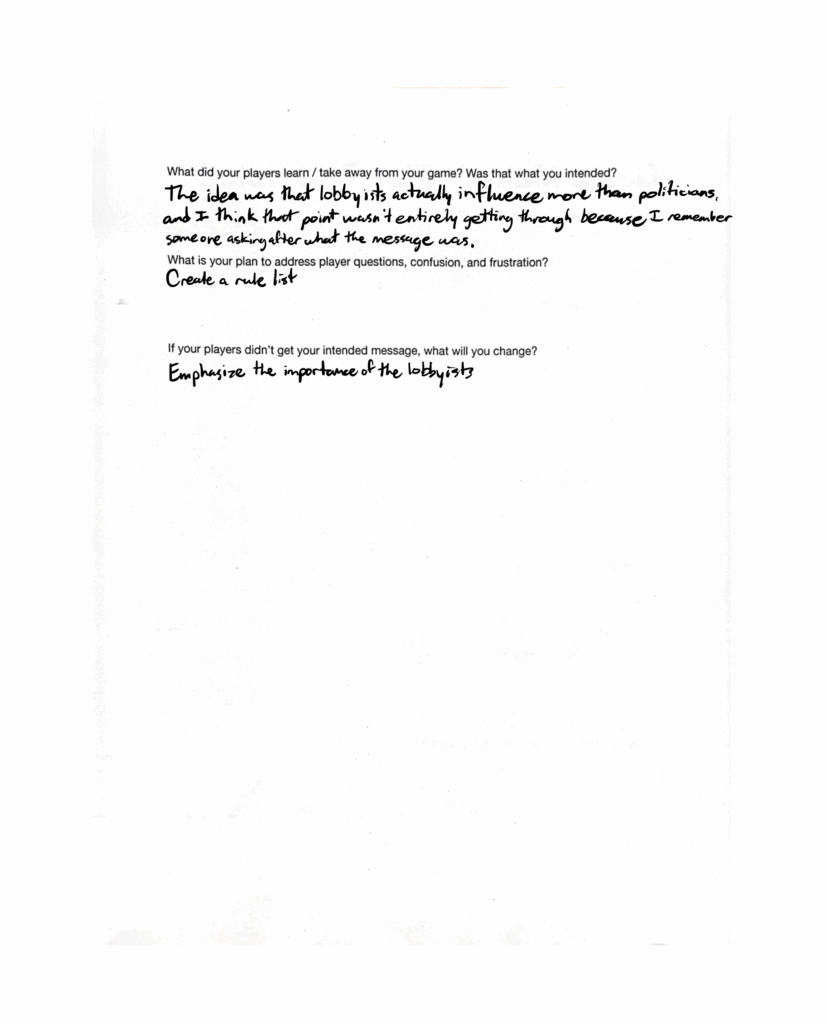 What did your players learn / take away from your game? Was that what you intended?
The idea was that lobbyists actually influence more than politicians,
and I think that point wasn't entirely getting through because I remember
someone asking after what the message was.
What is your plan to address player questions, confusion, and frustration?
Create a rule list
If your players didn't get your intended message, what will you change?
Emphasize the importance of the lobbyists